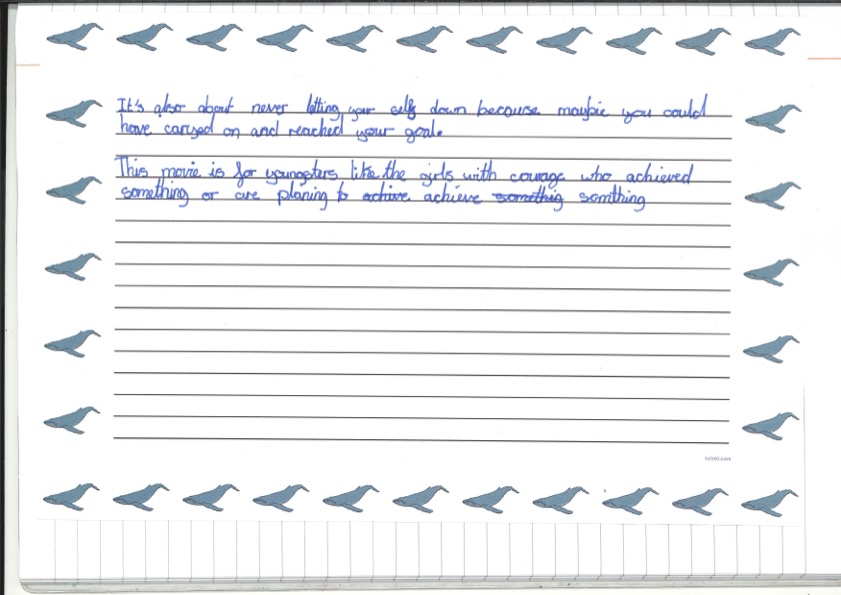 It's also about never letting your self down because maybie you could
have carryed on and reached your goal.
This movie is for youngsters like the girls with courage who achieved
something or are planing to achive achieve somethig somthing
twinkl.com